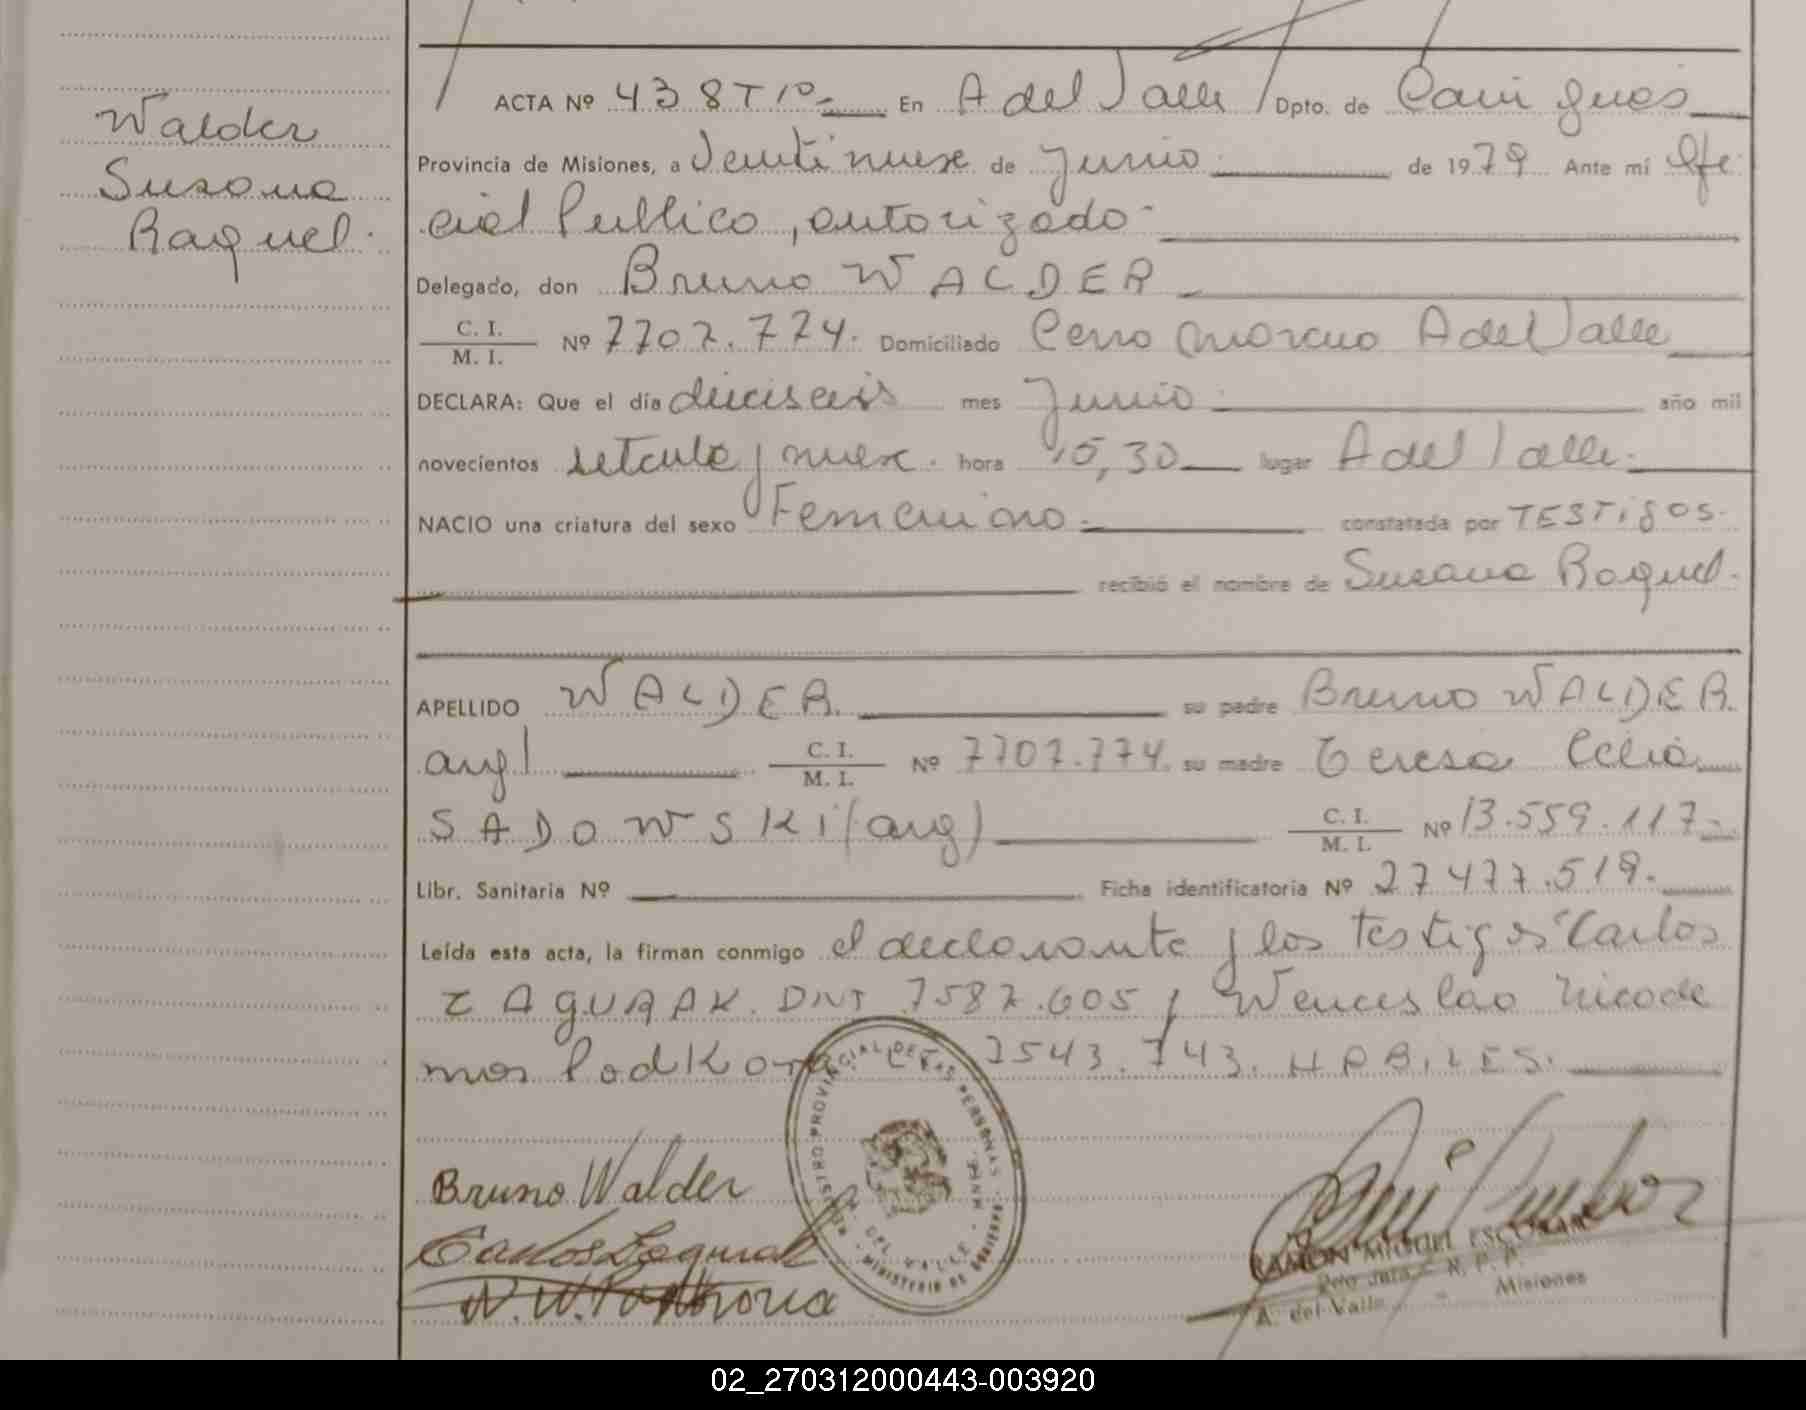 Walder
Susana
Raquel.
ACTA Nº 438 Tº 1º En A del Valle Dpto. de Cainguas
Provincia de Misiones, a Veintinueve de Junio de 1979 Ante mí Ofi
cial Publico, autorizado
Delegado, don Bruno WALDER
C. I.
M. I. Nº 7707.774. Domiciliado Cerro Moreno A del Valle
DECLARA: Que el día dieciseis mes Junio año mil
novecientos setenta y nueve. hora 15,30 lugar A del Valle.
NACIO una criatura del sexo Femenino constatada por TESTigos.
recibió el nombre de Susana Raquel.
APELLIDO WALDER. su padre Bruno WALDER.
arg/ C. I.
M. I. Nº 7707.774. su madre Teresa Celia
SADOWSKi (arg) C. I.
M. I. Nº 13.559.117
Libr. Sanitaria Nº Ficha identificatoria Nº 27477.519.
Leída esta acta, la firman conmigo el declarante y los testigos Carlos
ZAgURAK. DNI 7587.605 y Wenceslao Nicode
mos Podkova 7543.743. HABILES.
REGISTRO PROVINCIAL DE LAS PERSONAS
A. DEL VALLE
MINISTERIO DE GOBIERNO
Bruno Walder
Carlos Zagurak
RAMON MIGUEL ESCOBAR
R. P. P.
A. del Valle - Misiones
02_270312000443-003920